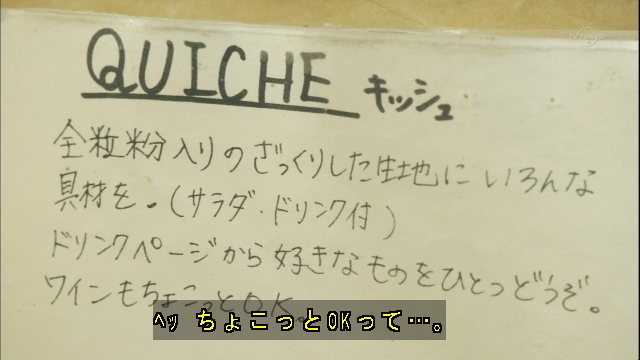 QUICHE キッシュ
全粒粉入りのざっくりした生地にいろんな
具材を。(サラダ・ドリンク付)
ドリンクページから好きなものをひとつどうぞ。
ワインもちょこっとOK。
ヘッ ちょこっとOKって…。